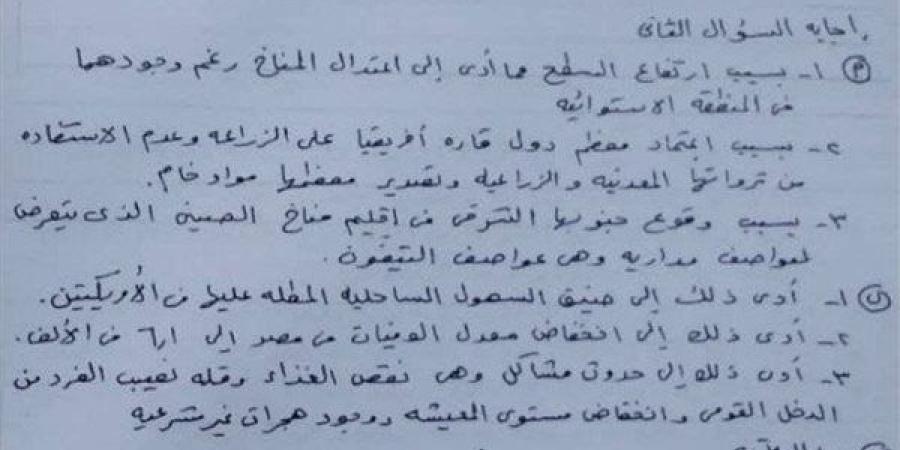 إجابه السؤال الثانى
(٢) ١- بسبب ارتفاع السطح مما أدى إلى اعتدال المناخ رغم وجودهما
فى المنطقة الاستوائيه
٢- بسبب اعتماد معظم دول قاره أفريقيا على الزراعه وعدم الاستفاده
من ثرواتها المعدنيه والزراعيه وتصدير معظمها مواد خام.
٣- بسبب وقوع جنوبها الشرقى فى إقليم مناخ الصينى الذى يتعرض
لعواصف مداريه وهى عواصف التيفون.
(ب) ١- أدى ذلك إلى ضيق السهول الساحليه المطله عليها فى الأمريكيتين.
٢- أدى ذلك إلى انخفاض معدل الوفيات فى مصر إلى ٦٫١ فى الألف.
٣- أدى ذلك إلى حدوث مشاكل وهى نقص الغذاء وقله نصيب الفرد من
الدخل القومى وانخفاض مستوى المعيشه ووجود هجرات غير شرعيه